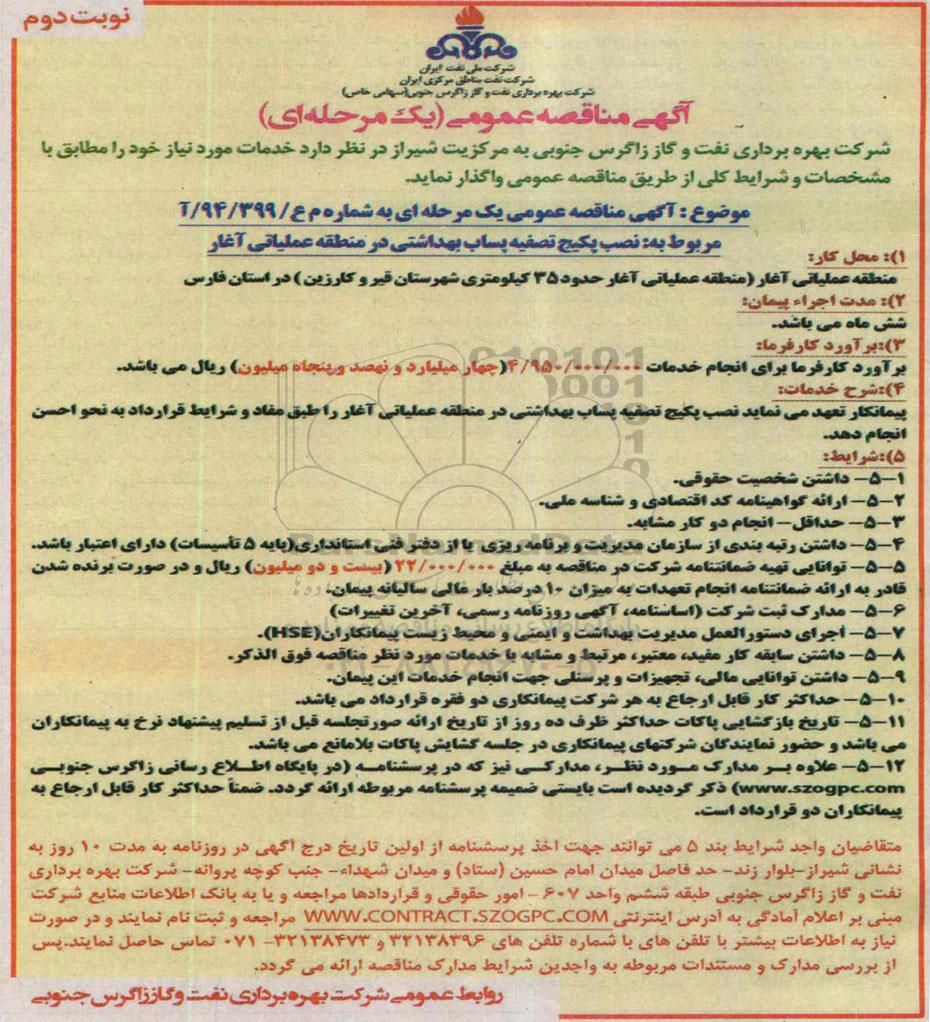 نوبت دوم
شرکت ملی نفت ایران
شرکت نفت مناطق مرکزی ایران
شرکت بهره برداری نفت و گاز زاگرس جنوبی(سهامی خاص)
آگهی مناقصه عمومی (یک مرحله ای)
شرکت بهره برداری نفت و گاز زاگرس جنوبی به مرکزیت شیراز در نظر دارد خدمات مورد نیاز خود را مطابق با
مشخصات و شرایط کلی از طریق مناقصه عمومی واگذار نماید.
موضوع : آگهی مناقصه عمومی یک مرحله ای به شماره م ع/ ۹۴/۳۹۹/آ
مربوط به: نصب پکیج تصفیه پساب بهداشتی در منطقه عملیاتی آغار
۱): محل کار:
منطقه عملیاتی آغار (منطقه عملیاتی آغار حدود ۳۵ کیلومتری شهرستان قیر و کارزین ) در استان فارس
۲): مدت اجراء پیمان:
شش ماه می باشد.
۳):برآورد کارفرما:
برآورد کارفرما برای انجام خدمات ۴/۹۵۰/۰۰۰/۰۰۰(چهار میلیارد و نهصد و پنجاه میلیون) ریال می باشد.
۴):شرح خدمات:
پیمانکار تعهد می نماید نصب پکیج تصفیه پساب بهداشتی در منطقه عملیاتی آغار را طبق مفاد و شرایط قرارداد به نحو احسن
انجام دهد.
۵):شرایط:
۱–۵– داشتن شخصیت حقوقی.
۲–۵– ارائه گواهینامه کد اقتصادی و شناسه ملی.
۳–۵– حداقل– انجام دو کار مشابه.
۴–۵– داشتن رتبه بندی از سازمان مدیریت و برنامه ریزی یا از دفتر فنی استانداری(پایه ۵ تأسیسات) دارای اعتبار باشد.
۵–۵– توانایی تهیه ضمانتنامه شرکت در مناقصه به مبلغ ۲۲/۰۰۰/۰۰۰ (بیست و دو میلیون) ریال و در صورت برنده شدن
قادر به ارائه ضمانتنامه انجام تعهدات به میزان ۱۰ درصد بار مالی سالیانه پیمان.
۶–۵– مدارک ثبت شرکت (اساسنامه، آگهی روزنامه رسمی، آخرین تغییرات)
۷–۵– اجرای دستورالعمل مدیریت بهداشت و ایمنی و محیط زیست پیمانکاران(HSE).
۸–۵– داشتن سابقه کار مفید، معتبر، مرتبط و مشابه با خدمات مورد نظر مناقصه فوق الذکر.
۹–۵– داشتن توانایی مالی، تجهیزات و پرسنلی جهت انجام خدمات این پیمان.
۱۰–۵– حداکثر کار قابل ارجاع به هر شرکت پیمانکاری دو فقره قرارداد می باشد.
۱۱–۵– تاریخ بازگشایی پاکات حداکثر ظرف ده روز از تاریخ ارائه صورتجلسه قبل از تسلیم پیشنهاد نرخ به پیمانکاران
می باشد و حضور نمایندگان شرکتهای پیمانکاری در جلسه گشایش پاکات بلامانع می باشد.
۱۲–۵– علاوه بر مدارک مورد نظر، مدارکی نیز که در پرسشنامه (در پایگاه اطلاع رسانی زاگرس جنوبی
www.szogpc.com) ذکر گردیده است بایستی ضمیمه پرسشنامه مربوطه ارائه گردد. ضمناً حداکثر کار قابل ارجاع به
پیمانکاران دو قرارداد است.
متقاضیان واجد شرایط بند ۵ می توانند جهت اخذ پرسشنامه از اولین تاریخ درج آگهی در روزنامه به مدت ۱۰ روز به
نشانی شیراز-بلوار زند- حد فاصل میدان امام حسین (ستاد) و میدان شهداء- جنب کوچه پروانه- شرکت بهره برداری
نفت و گاز زاگرس جنوبی طبقه ششم واحد ۶۰۷ - امور حقوقی و قراردادها مراجعه و یا به بانک اطلاعات منابع شرکت
مبنی بر اعلام آمادگی به آدرس اینترنتی WWW.CONTRACT.SZOGPC.COM مراجعه و ثبت نام نمایند و در صورت
نیاز به اطلاعات بیشتر با تلفن های با شماره تلفن های ۳۲۱۳۸۳۹۶ و ۳۲۱۳۸۴۷۳- ۰۷۱ تماس حاصل نمایند.پس
از بررسی مدارک و مستندات مربوطه به واجدین شرایط مدارک مناقصه ارائه می گردد.
روابط عمومی شرکت بهره برداری نفت وگاززاگرس جنوبی